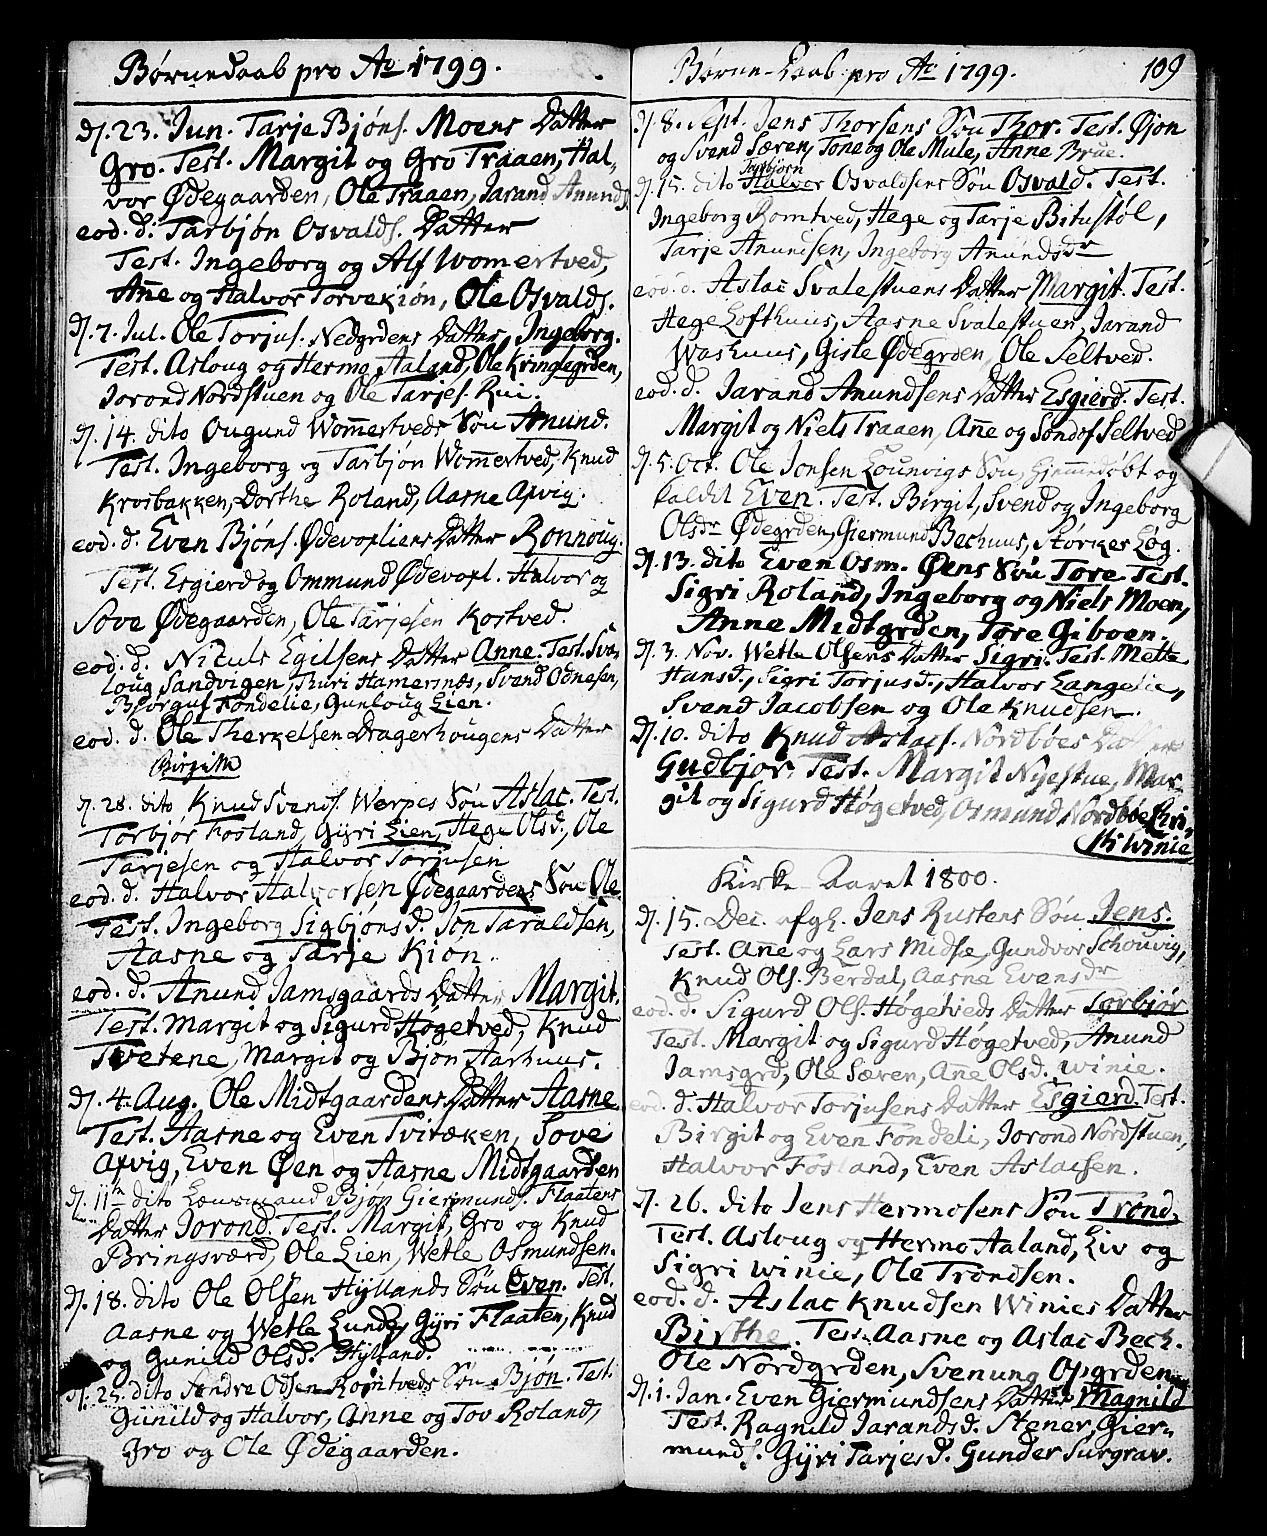 Børnedaab pro Ao 1799.
D. 23. Jun. Tarje Bjóns. Moens Datter
Gro. Test. Margit og Gro Traaen, Hal-
vor Ødegaarden, Ole Traaen, Jarand Anunds.
eod. d. Tarbjón Osvalds. Datter
Test. Ingeborg og Alf Womertved,
Añe og Halvor Torvekión, Ole Osvalds.
D. 7. Jul. Ole Torjus. Nedgrdens Datter, Ingeborg.
Test. Asloug og Hermo Aaland, Ole Kringlegrden,
Jorond Nordstuen og Ole Tarjes. Rui.
D. 14. dito Ougund Wom̄ertveds Són Anund.
Test. Ingeborg og Tarbjon Wom̄ertved, Knud
Krosbakken, Dorthe Roland, Aasne Apvig.
eod. d. Even Bjóns. Ødevopliens Datter Ronnoug.
Test. Esgierd og Ommund Ødevopl. Halvor og
Sove Ødegaarden, Ole Tarjesen Kostved.
eod. d. Niculs Egilsens Datter Anne. Test. Sva-
loug Sandvigen, Thuri Hamersnæs, Svend Odnesen,
Bergul Fondelie, Gunloug Lien.
eod. d. Ole Therkelsen Dragerhougens Datter
Birgitte
D. 28. dito Knud Svends. Werpes Són Aslac. Test.
Torbjor Fosland, Gÿri Lien, Hege Olsd., Ole
Tarjesen og Halvor Torjusen
eod. d. Halvor Halvorsen Ødegaardens Són Ole
Test. Ingeborg Sigbjónsd. Jón Taraldsen,
Aasne og Tarje Kión.
eod. d. Anund Jamsgaards Datter Margit.
Test. Margit og Sigurd Høgetved, Knud
Tvetene, Margit og Bjón Aarhuus.
D. 4. Aug. Ole Midtgaardens Datter Aasne
Test. Aasne og Even Tviræken, Sove
Apvig, Even Øen og Aasne Midtgaarden
D. 11te dito Lænsmand Bjón Giermunds. Flaatens
Datter Jorond. Test. Margit, Gro og Knud
Bringsværd, Ole Lien, Wetle Osmundsen.
D. 18. dito Ole Olsen Hÿllands Són Even. Test.
Aasne og Wetle Lunde, Gÿri Flaaten, Knud
og Gunild Olsd. Hÿlland.
D. 25. dito Sondre Odsen Romtveds Són Bjón. Test.
Gunild og Halvor, Anne og Tov Roland,
Gro og Ole Ødegaarden.
Børne-Daab pro Ao 1799. 109
D. 8. Sept. Jens Thorsens Són Thor. Test. Bjón
og Svend Særen, Tone og Ole Mule, Anne Brue.
Tarbjörn
D. 15. dito Halvor Osvaldsens Són Osvald. Test.
Ingeborg Romtved, Hege og Tarje Bitustól,
Tarje Anundsen, Ingeborg Anundsdr
eod. d. Aslac Svalestuens Datter Margit. Test.
Hege Lofthuus, Aasne Svalestuen, Jarand
Washuus, Gisle Ødegrden, Ole Seltved.
eod. d. Jarand Anundsens Datter Esgierd. Test.
Margit og Niels Traaen, Añe og Sondof Seltved
D. 5. Oct. Ole Jonsen Lounvigs Són, hjem̄edóbt og
kaldet Even. Test. Birgit, Svend og Ingeborg
Olsdr Ødegrden, Giermund Bechuus, Stórker Log.
D. 13. dito Even Osm. Øens Són Tore Test.
Sigri Roland, Ingeborg og Niels Moen,
Anne Midtgrden, Tore Giboen.
D. 3. Nov. Wetle Olsens Datter Sigri. Test. Mette
Hansd., Sigri Torjusd., Halvor Langelie,
Svend Jacobsen og Ole Knudsen.
D. 10. dito Knud Aslacs. Nordbóes Datter
Gudbjor. Test. Margit Nyestue, Mar-
git og Sigurd Høgetved, Osmund Nordbóe Kri-
sti Winie
Kirke-Aaret 1800.
D. 15. Dec. afgh. Jens Rustens Són Jens.
Test. Ane og Lars Midsæ, Gundvor Schouvig,
Knud Ols. Berdal, Aasne Evensdr
eod. d. Sigurd Ols. Høgetveds Datter Torbjór
Test. Margit og Sigurd Høgetved, Anund
Jamsgrd, Ole Særen, Añe Olsd. Winie.
eod. d. Halvor Torjusens Datter Esgierd. Test.
Birgit og Even Fondeli, Jorond Nordstuen,
Halvor Fosland, Even Aslacsen.
D. 26. dito Jens Hermosens Són Trond,
Test. Asloug og Hermo Aaland, Liv og
Sigri Winie, Ole Trondsen.
eod. d. Aslac Knudsen Winies Datter
Birthe. Test. Aasne og Aslac Bech.
Ole Nordgrden, Svenung Opgrden
D. 1. Jan. Even Giermundsens Datter Magnild
Test. Ragnild Jarandsd. Stener, Gier-
munds. Gÿri Tarjesd. Gunder Surgrav.